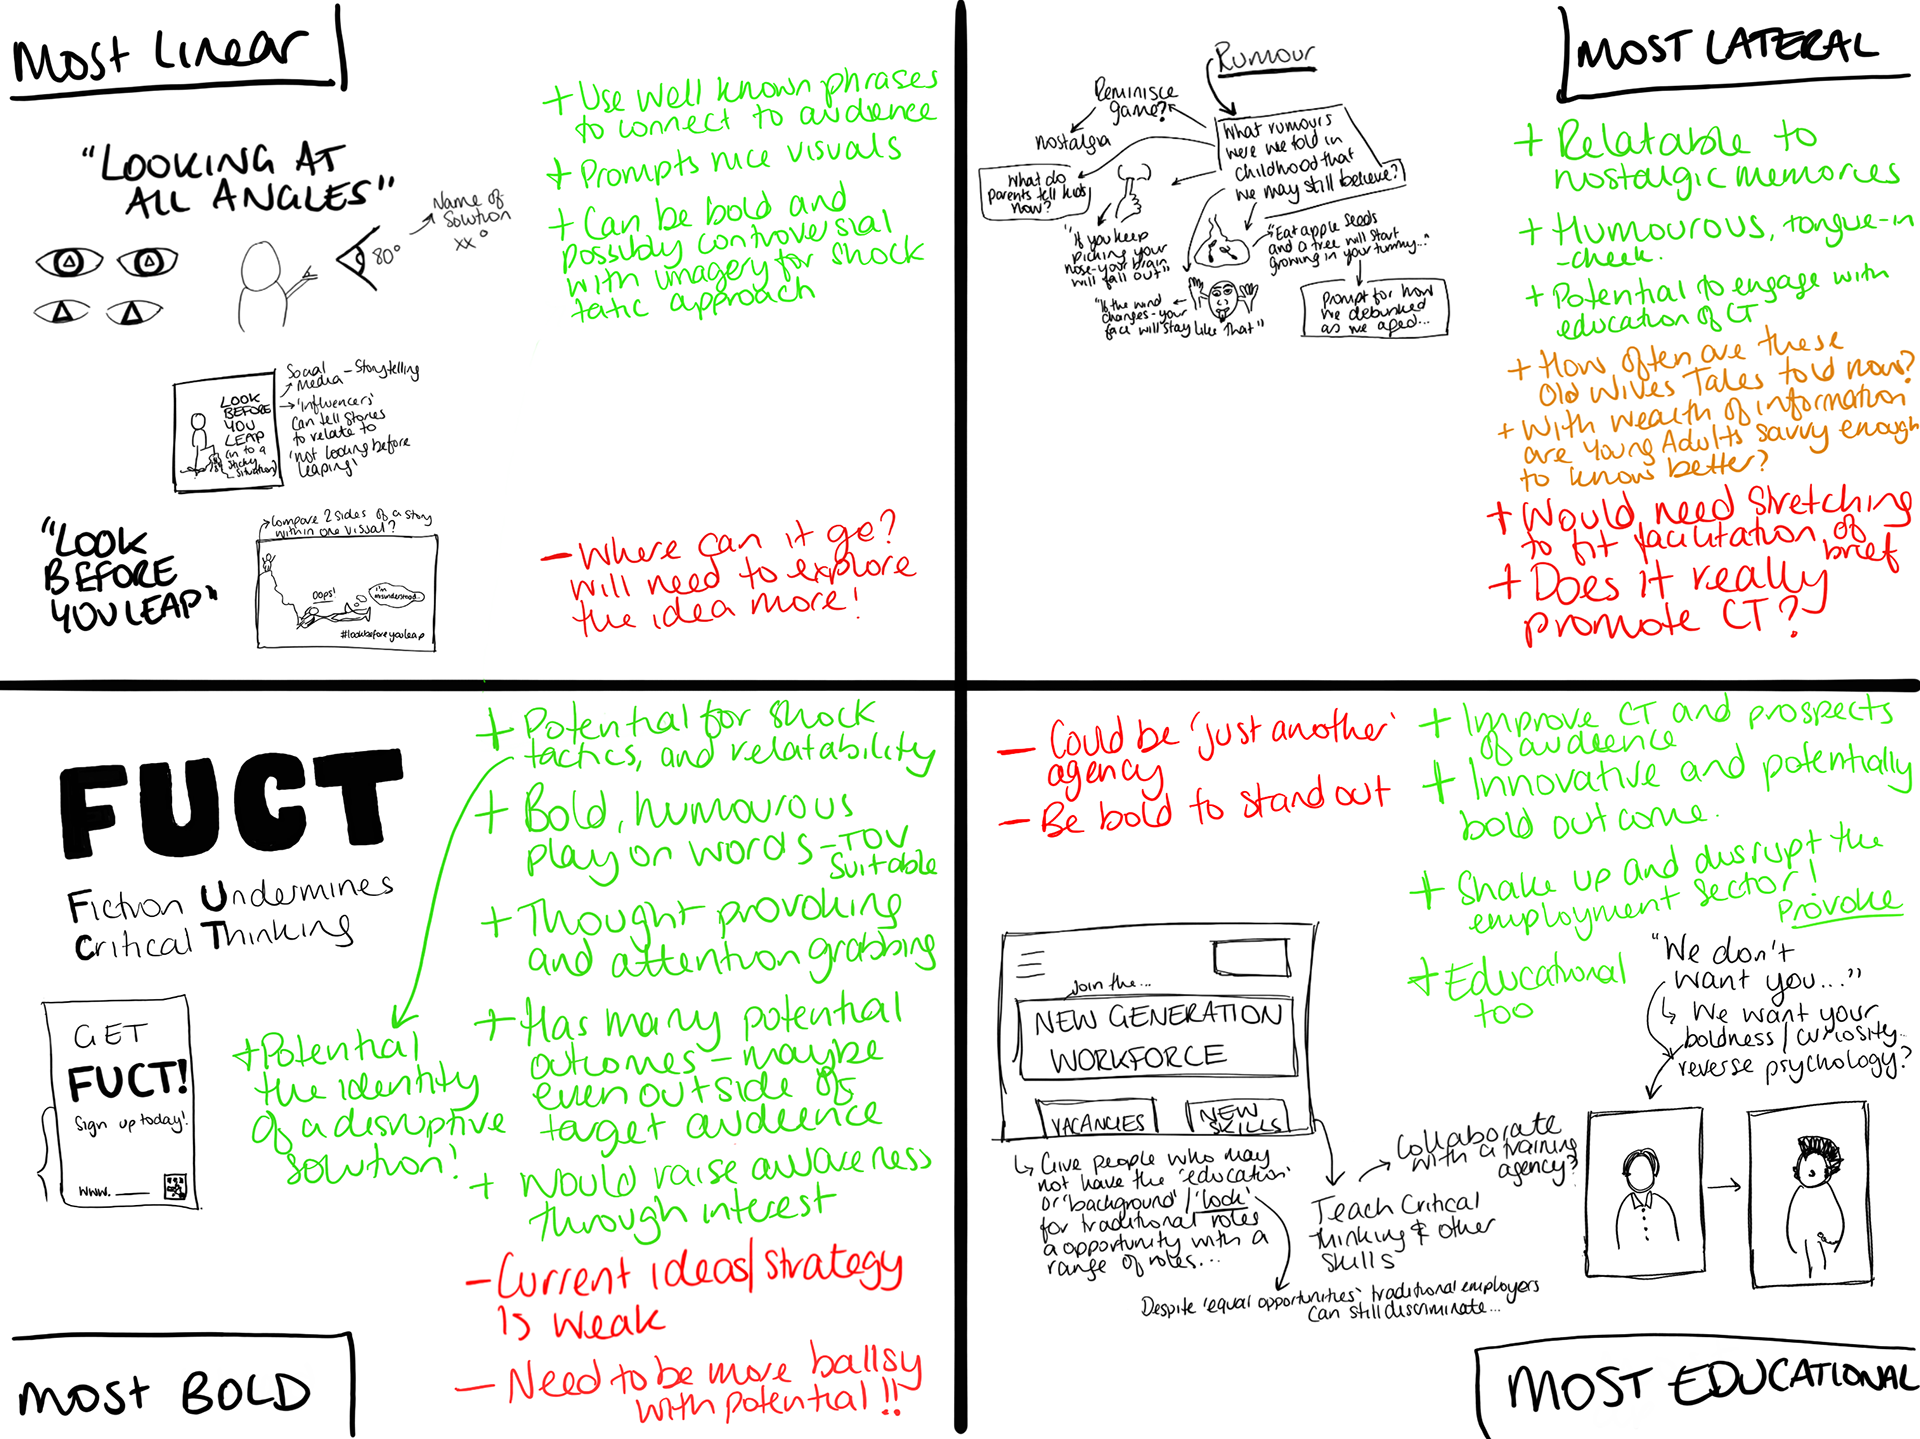 Most Linear
"LOOKING AT
ALL ANGLES"
80°
Name of
Solution
xx°
+ Use well known phrases
to connect to audience
+ Prompts nice visuals
+ Can be bold and
possibly controversial
with imagery for shock
tatic approach
LOOK
BEFORE
YOU
LEAP
(in to a
sticky
situation)
Social
Media - Storytelling
'Influencers'
can tell stories
to relate to
'not looking before
leaping'
"LOOK
BEFORE
YOU LEAP"
Compare 2 sides of a story
within one visual?
Oops!
I'm
misunderstood...
#lookbeforeyouleap
- Where can it go?
will need to explore
the idea more!
MOST LATERAL
Rumour
Reminisce
game?
nostalgia
What rumours
were we told in
childhood that
we may still believe?
What do
parents tell kids
now?
"If you keep
picking your
nose-your brain
will fall out"
"Eat apple seeds
and a tree will start
growing in your tummy..."
"If the wind
changes-your
face will stay like that"
Prompt for how
we debunked
as we aged...
+ Relatable to
nostalgic memories
+ Humourous, tongue-in
-cheek.
+ Potential to engage with
education of CT
+ How often are these
Old Wives Tales told now?
+ With wealth of information
are Young Adults savvy enough
to know better?
+ Would need stretching
to fit facilitation of
brief
+ Does it really
promote CT?
FUCT
Fiction Undermines
Critical Thinking
GET
FUCT!
Sign up today!
www.
+ Potential for shock
tactics, and relatability
+ Bold, humourous
play on words - TOV
Suitable
+ Thought provoking
and attention grabbing
+ Has many potential
outcomes - maybe
even outside of
target audience
+ Would raise awareness
through interest
+ Potential
the identity
of a disruptive
solution!
- Current ideas/strategy
is weak
- Need to be more ballsy
with potential!!
MOST BOLD
- Could be 'just another'
agency
- Be bold to stand out
+ Improve CT and prospects
of audience
+ Innovative and potentially
bold outcome.
+ Shake up and disrupt the
employment sector!
Provoke
+ Educational
too
Join the...
NEW GENERATION
WORKFORCE
VACANCIES
NEW
SKILLS
Give people who may
not have the 'education'
or 'background' / 'look'
for traditional roles
a opportunity with a
range of roles...
Despite 'equal opportunities' traditional employers
can still discriminate...
Teach Critical
Thinking & other
skills
Collaborate
with a training
agency?
"We don't
want you..."
We want your
boldness/curiosity...
reverse psychology?
MOST EDUCATIONAL